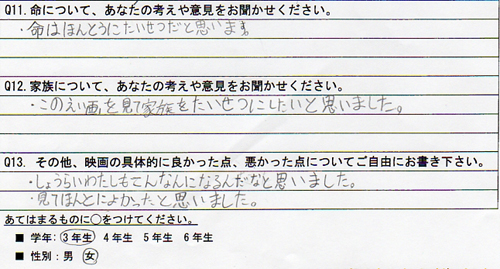 Q11. 命について、あなたの考えや意見をお聞かせください。
・命はほんとうにたいせつだと思います。
Q12. 家族について、あなたの考えや意見をお聞かせください。
・このえい画を見て家族をたいせつにしたいと思いました。
Q13. その他、映画の具体的に良かった点、悪かった点についてご自由にお書き下さい。
・しょうらいわたしもこんなんになるんだなと思いました。
・見てほんとによかったと思いました。
あてはまるものに○をつけてください。
■ 学年: 3年生 4年生 5年生 6年生
■ 性別: 男 女